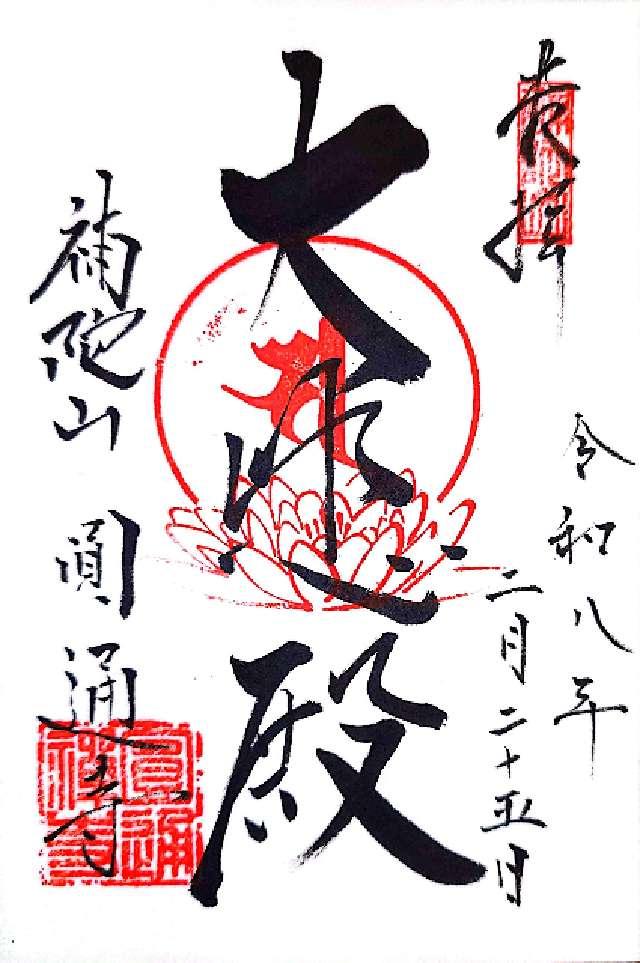 奉拝
令和八年
二月二十五日
大悲殿
補陀山 圓通寺
圓通
禅寺